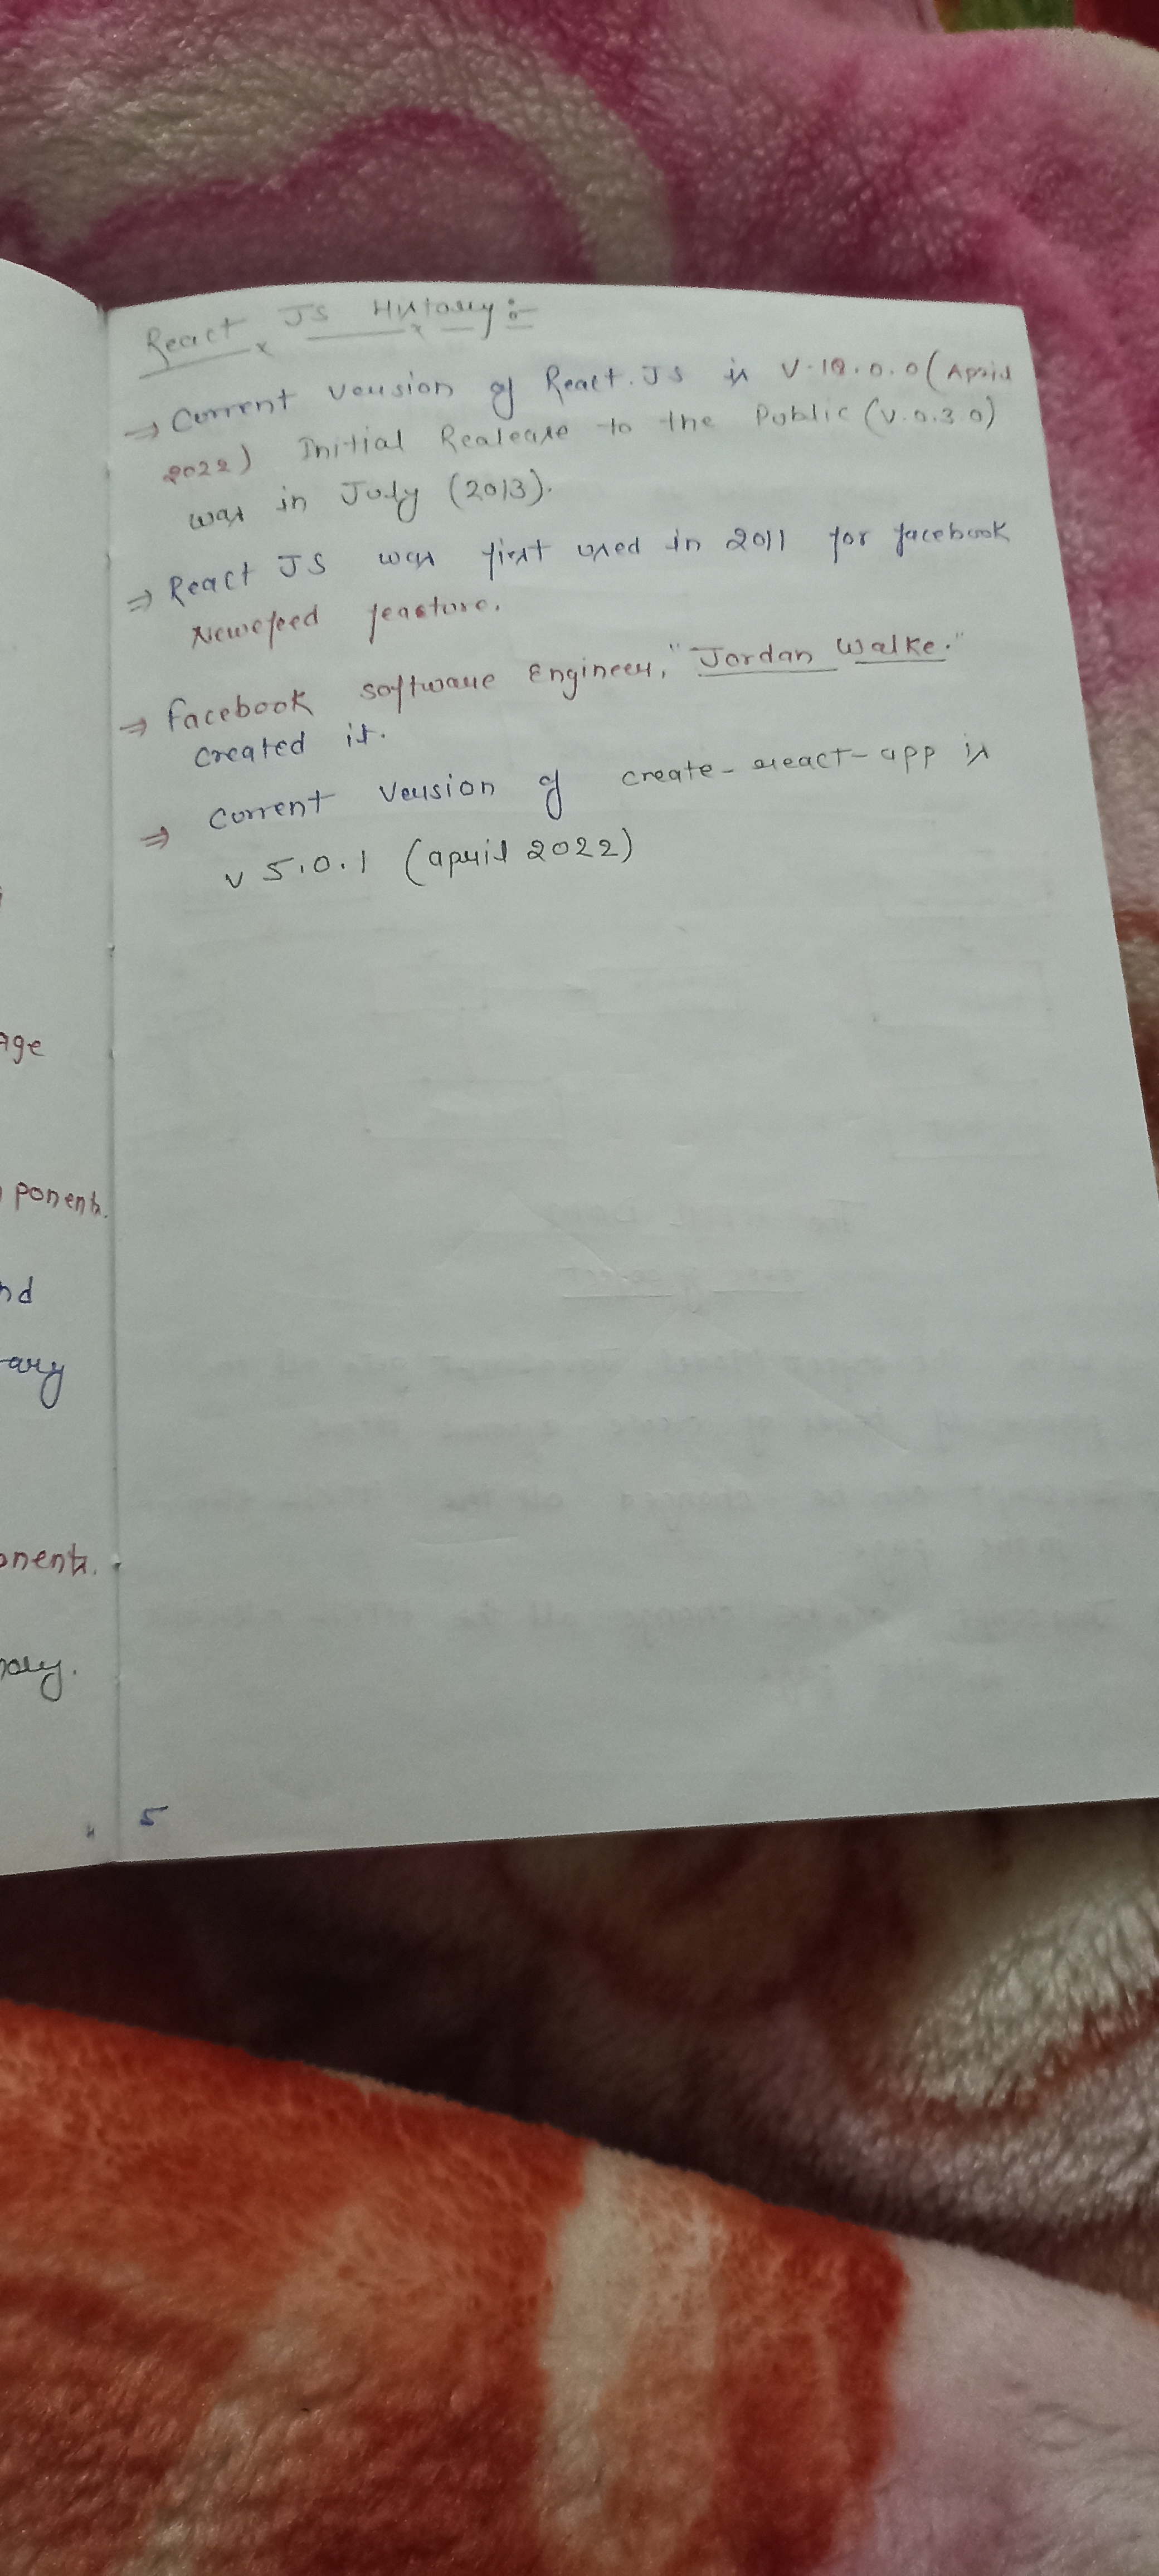 React JS History :-
⇒ Current version of React.JS is V.18.0.0 (April
2022) Initial Realease to the Public (V.0.3.0)
was in July (2013).
⇒ React JS was first used in 2011 for facebook
Newsfeed feasture.
⇒ facebook software Engineer, "Jordan Walke."
created it.
⇒ Current Version of create-react-app is
v 5.0.1 (april 2022)
age
ponents.
nd
ary
onents.
5